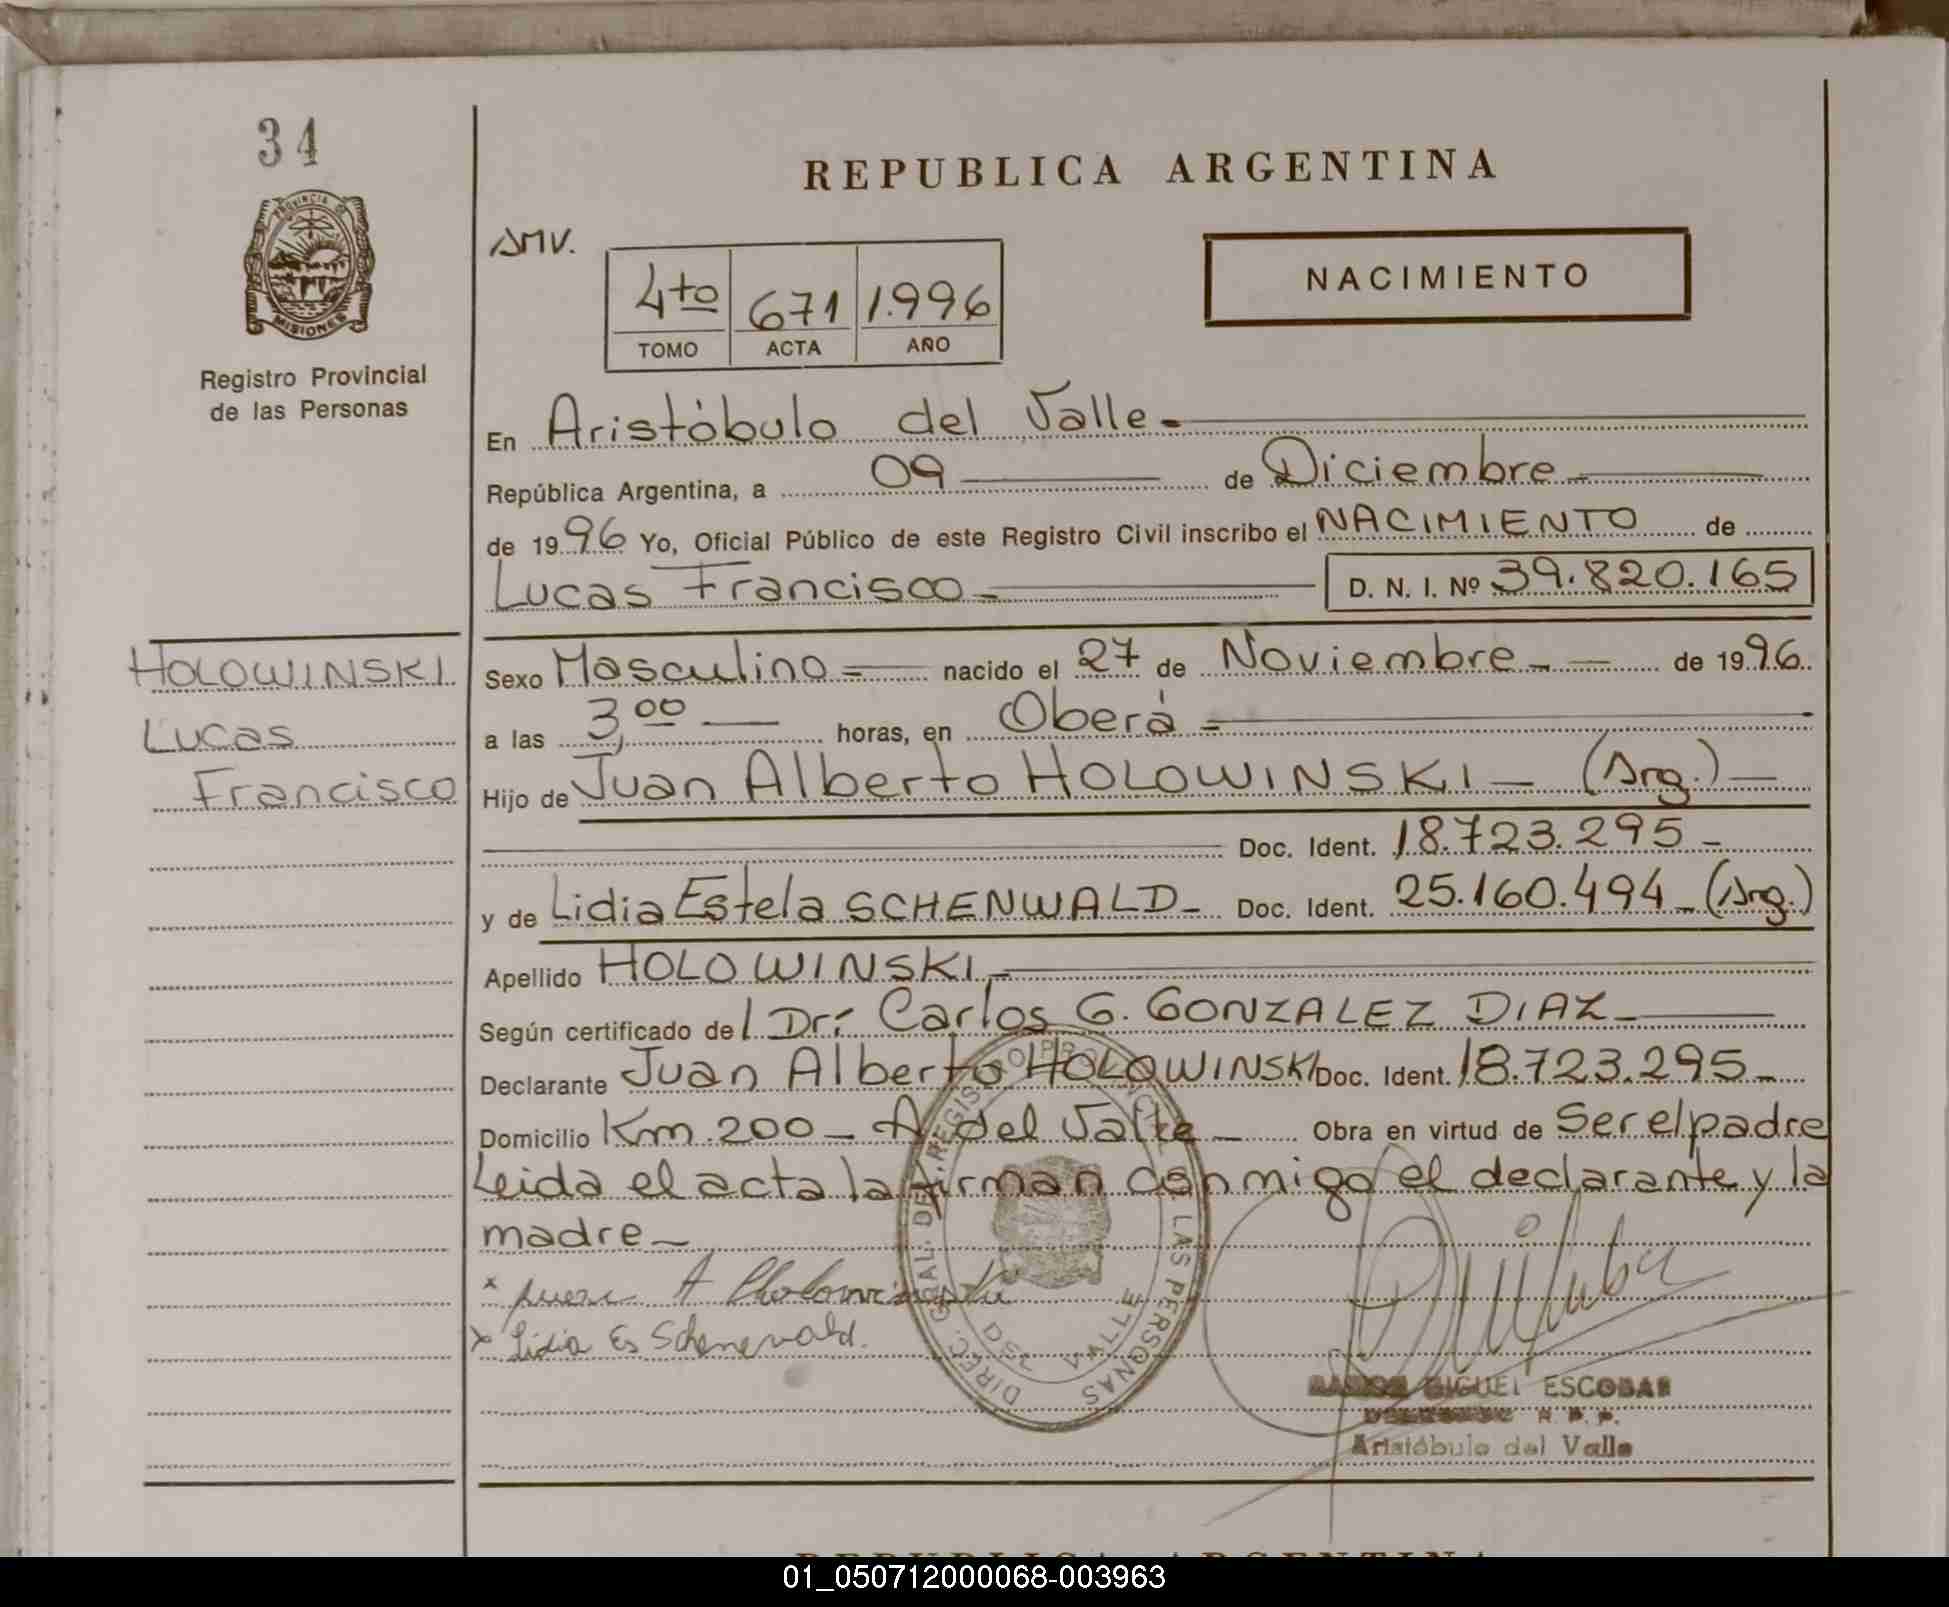 34
PROVINCIA DE
MISIONES
Registro Provincial
de las Personas
REPUBLICA ARGENTINA
AMV.
4to 671 1.996
TOMO ACTA AÑO
NACIMIENTO
En Aristóbulo del Valle.-
República Argentina, a 09 de Diciembre.-
de 1996 Yo, Oficial Público de este Registro Civil inscribo el NACIMIENTO de
Lucas Francisco.- D. N. I. Nº 39.820.165
HOLOWINSKI
Lucas
Francisco
Sexo Masculino.- nacido el 27 de Noviembre.- de 1996.
a las 3,00 horas, en Oberá.-
Hijo de Juan Alberto HOLOWINSKI - (Arg.) -
Doc. Ident. 18.723.295 -
y de Lidia Estela SCHENWALD - Doc. Ident. 25.160.494 - (Arg.)
Apellido HOLOWINSKI.-
Según certificado del Dr: Carlos G. GONZALEZ DIAZ -
Declarante Juan Alberto HOLOWINSKI Doc. Ident. 18.723.295 -
Domicilio Km. 200 - A. del Valle - Obra en virtud de Ser el padre
Leida el acta la firman conmigo el declarante y la
madre -
x Lidia Es Schenevald.
DIREC. GRAL. DEL REGISTRO PROVINCIAL DE LAS PERSONAS
VALLE
RAMON MIGUEL ESCOBAR
R. P. P.
Aristóbulo del Valle
REPUBLICA ARGENTINA
01_050712000068-003963